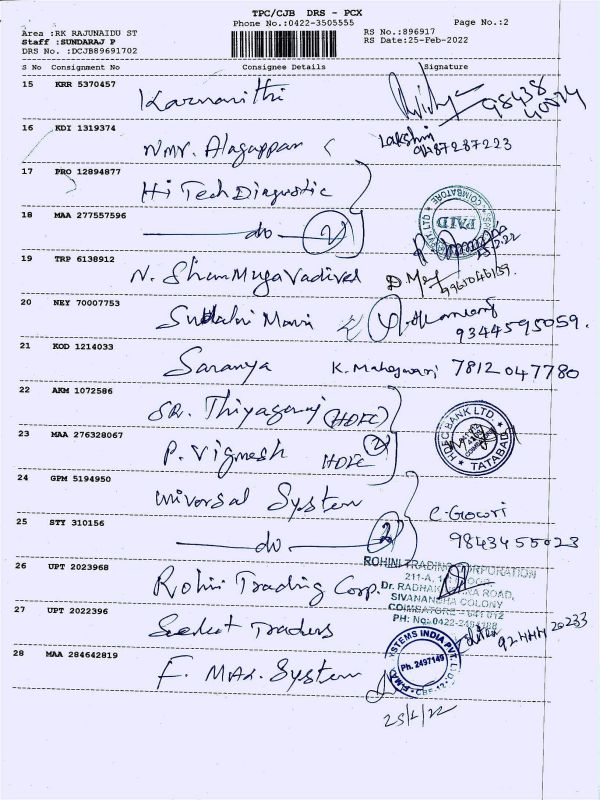 TPC/CJB DRS - PCX
Phone No.:0422-3505555 Page No.:2
Area :RK RAJUNAIDU ST RS No.:896917
Staff :SUNDARAJ P RS Date:25-Feb-2022
DRS No. :DCJB89691702
S No Consignment No Consignee Details Signature
15 KRR 5370457 Karunanithi 98438
16 KDI 1319374 NMV. Alagappan Lakshmi
9487287223
17 PRO 12894877 Hi Tech Diagnostic
COIMBATORE PAID
18 MAA 277557596 do 2
19 TRP 6138912 N. ShanMugaVadivel
20 NEY 70007753 Mani 9344595059.
21 KOD 1214033 Saranya K. Maheswari 7812047780
22 AKM 1072586 SR. Thiyagaraj (HDFC)
HDFC BANK LTD. TATABAD
23 MAA 276328067 P. Vignesh HDFC 2
24 GPM 5194950 Universal System C. Gowri
25 STY 310156 do 2 9843455023
26 UPT 2023968 Rohini Trading Corp.
ROHINI TRADING CORPORATION
211-A,
Dr. RADHAKRISHNA ROAD,
SIVANANDHA COLONY
COIMBATORE - 641 012
PH: No:0422-
27 UPT 2022396 Select Traders
28 MAA 284642819 F. Max. System
SYSTEMS INDIA PVT. LTD Ph. 2497149